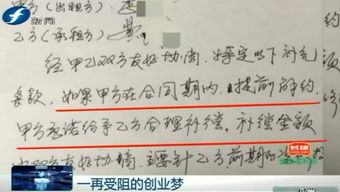 新闻
甲方(出租方)
乙方(承租方)
约
经甲乙双方友好协商,特定以下补充
条款,如果甲方在合同期内,提前解约,
甲方承诺给予乙方合理补偿,补偿金额
由双方友好协商,
乙方前期
一再受阻的创业梦